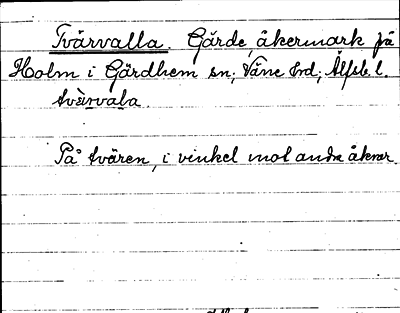 Tvärvalla. Gärde, åkermark på
Holm i Gärdhem sn; Väne hrd; Älfsb. l.
tvärvala
På tvären, i vinkel mot andra åkrar